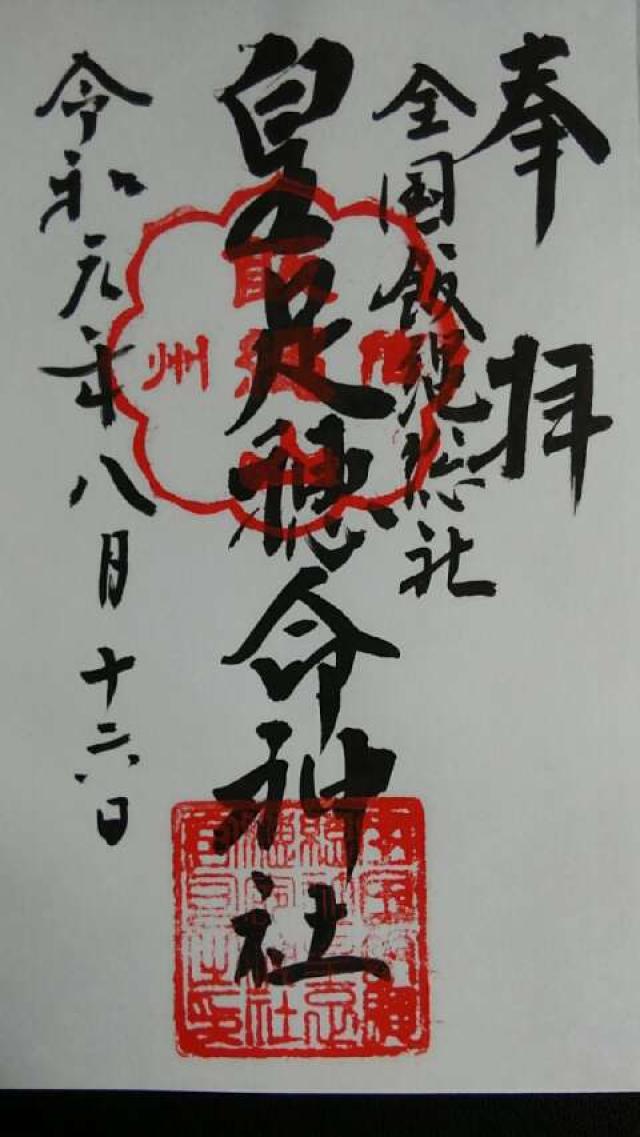 奉拝
全国飯縄総社
皇足穂命神社
令和元年八月十六日
州